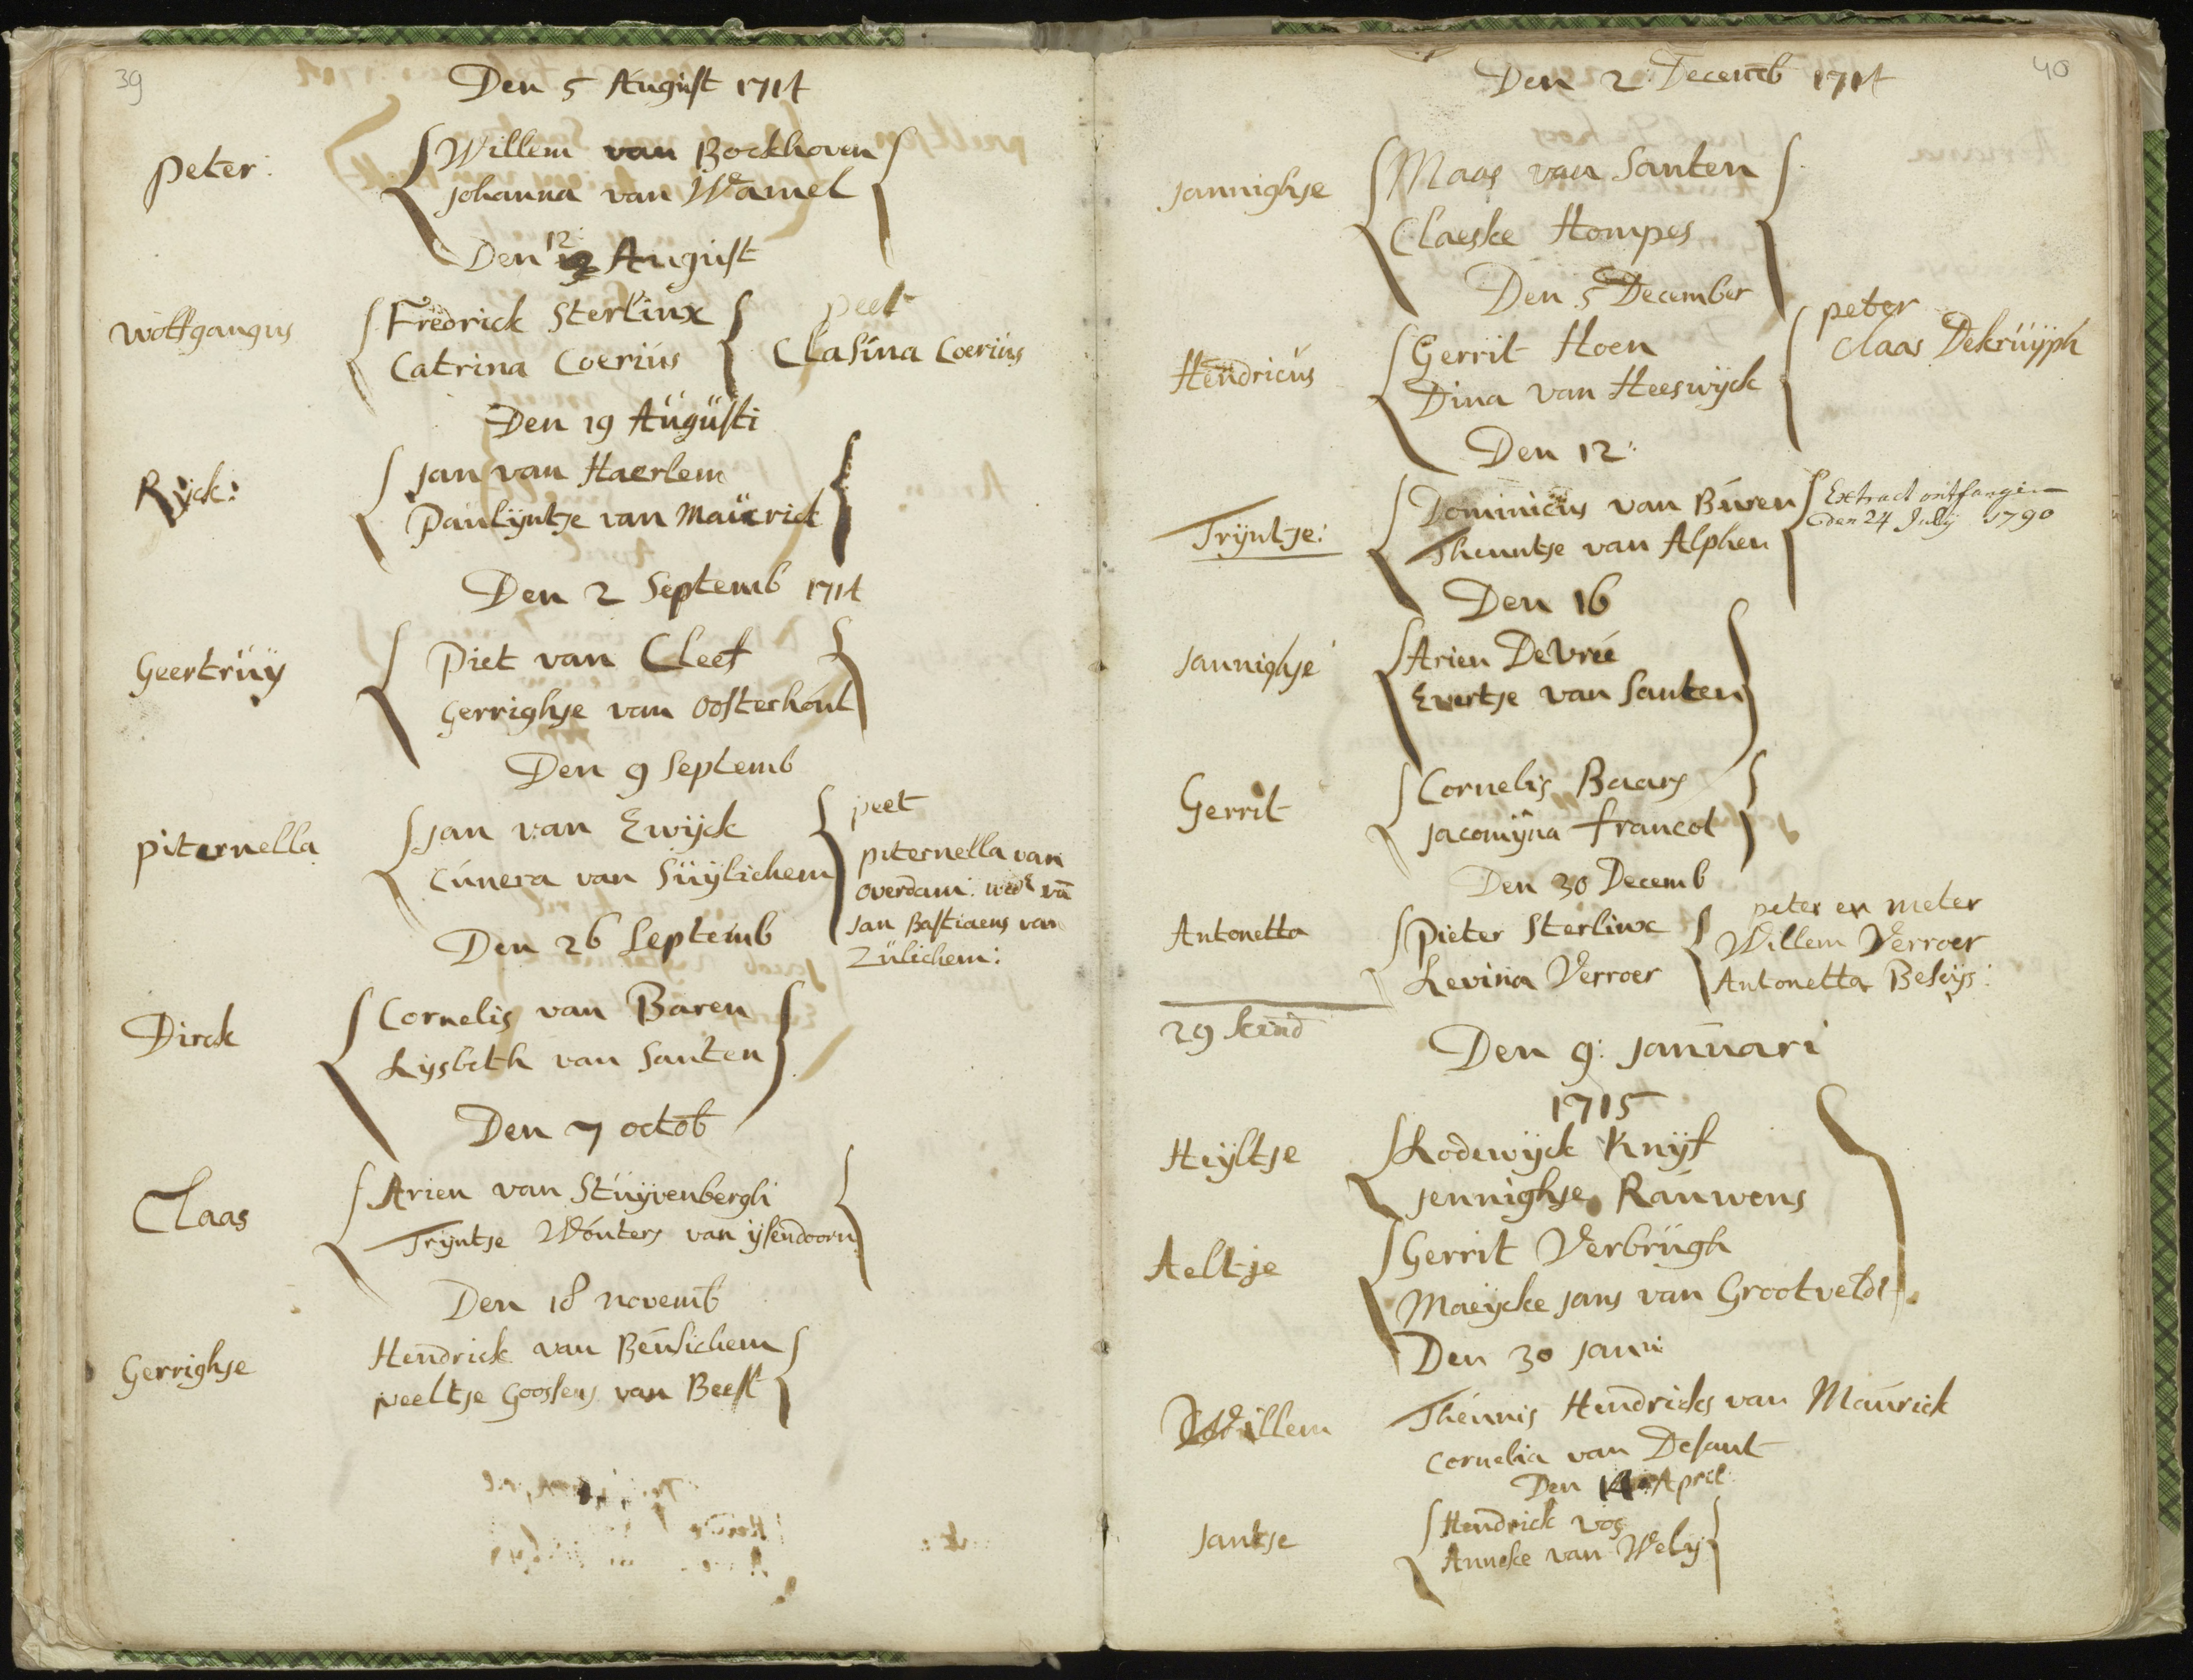 39
Den 5 August 1714
peter:
Willem van Bockhoven
Johanna van Wamel
Den 12: August
Wolfgangus
Fredrick Sterlinx
Catrina Coerius
peet
Clasina Coerius
Den 19 Augusti
Rijck:
Jan van Haerlem
Paulijntje van Maurick
Den 2 Septemb 1714
Geertruy
Piet van Cleef
Gerrighje van Oosterhout
Den 9 Septemb
piternella
Jan van Ewijck
Cunera van Suijlichem
peet
piternella van
overdam: wede va
Jan Bastiaens van
Zulichem:
Den 26 Septemb
Dirck
Cornelis van Baren
Lijsbeth van Santen
Den 7 octob
Claas
Arien van Stuijvenbergh
Trijntje Wouters van ijsendoorn
Den 18 novemb
Gerrighje
Hendrick van Beusichem
Neeltje Goossens van Beest
40
Den 2: Decemb 1714
Jannighje
Maas van Santen
Claeske Hompes
Den 5 December
Hendricus
Gerrit Hoen
Dina van Heeswijck
peter
Claas Dekruijph
Den 12:
Trijntje:
Dominicus van Buren
Theuntje van Alphen
Extract ontfangen
den 24 July 1790
Den 16
Jannighje
Arien De Vree
Evertje van Santen
Gerrit
Cornelis Baars
Jacomijna francot
Den 30 Decemb
Antonetta
Pieter Sterlinx
Levina Verroer
peter en meter
Willem Verroer
Antonetta Beseijs:
29 kend
Den 9: Januari
1715
Heijltje
Lodewijck Knijf
Jennighje Rauwens
Aeltje
Gerrit Verbrugh
Maeijcke Jans van Grootveldt
Den 30 Janu:
Willem
Theunis Hendricks van Maurick
Cornelia van Desant
Den April:
Jantje
Hendrick vos
Anneke van Welij